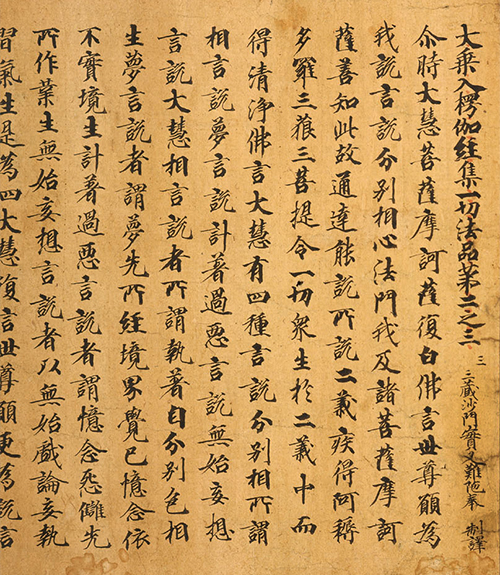 大乗入楞伽經集一切法品第二之三 三 三藏沙門實叉難陁奉 制譯
尒時大慧菩薩摩訶薩復白佛言世尊願為
我說言說分別相心法門我及諸菩薩摩訶
薩善知此故通達能說所說二義疾得阿耨
多羅三藐三菩提令一切衆生於二義中而
得清淨佛言大慧有四種言說分別相所謂
相言說夢言說計著過惡言說無始妄想
言說大慧相言說者所謂執著自分別色相
生夢言說者謂夢先所經境界覺已憶念依
不實境生計著過惡言說者謂憶念怨讎先
所作業生無始妄想言說者以無始戲論妄執
習氣生是為四大慧復言世尊願更為說言